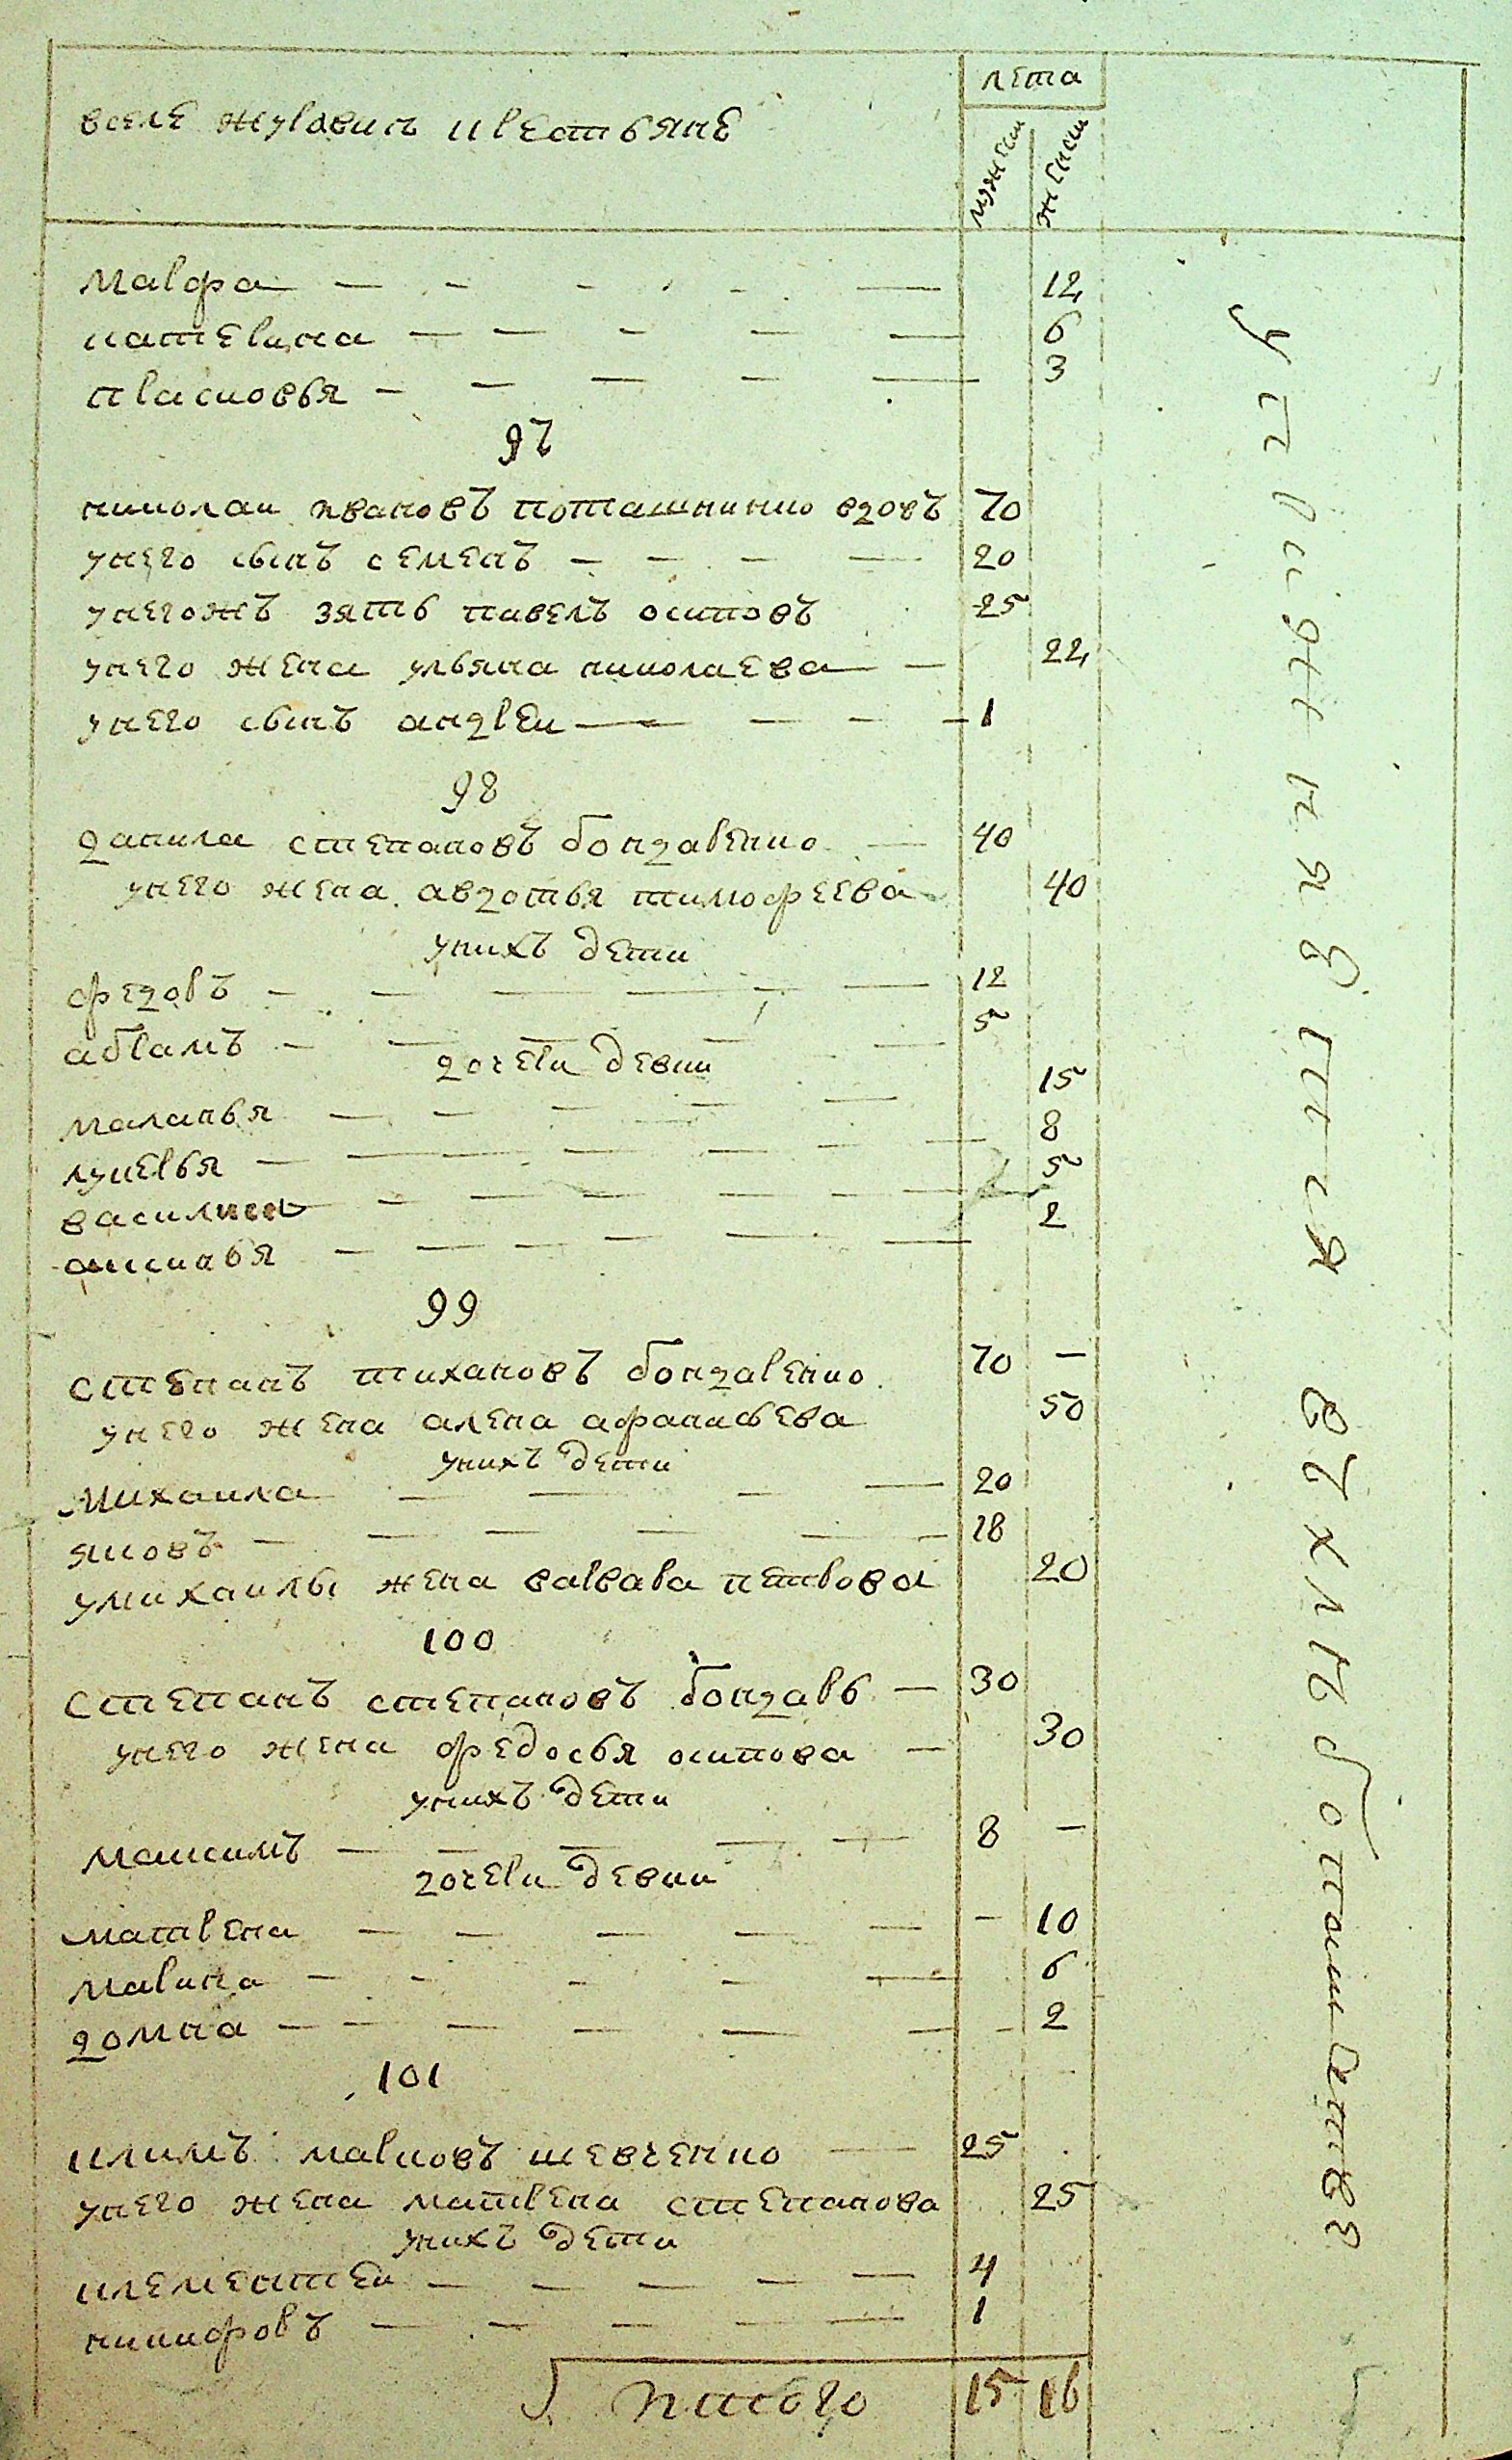 лета
вселе журавки крестьяне
мужеск
женск
Марфа — 12
катерина — 6
прасковья — 3
97
николаи ивановъ поташникно вдовъ 70
унего сынъ семенъ — 20
унегожъ зять павелъ осиповъ 25
унего жена ульяна николаева — 22
унего сынъ андреи — 1
98
данила степановъ бондаренко — 40
унего жена авдотья тимофеева 40
унихъ дети
федоръ — 12
абрамъ — 5
дочери девки
маланья — 15
лукерья — 8
василиса — 5
аксинья — 2
99
степанъ тихановъ бондаренко 70 —
унего жена алена афанасьева 50
унихъ дети
Михаила — 20
яковъ — 18
умихаилы жена варвара петрова 20
100
степанъ степановъ бондарь — 30
унего жена федосья осипова — 30
унихъ дети
максимъ — 8 —
дочери девки
матрена — — 10
марина — 6
домна — 2
101
климъ марковъ шевченко — 25
унего жена матрена степанова 25
унихъ дети
клементеи — 4
никифоръ — 1
итого 15 16